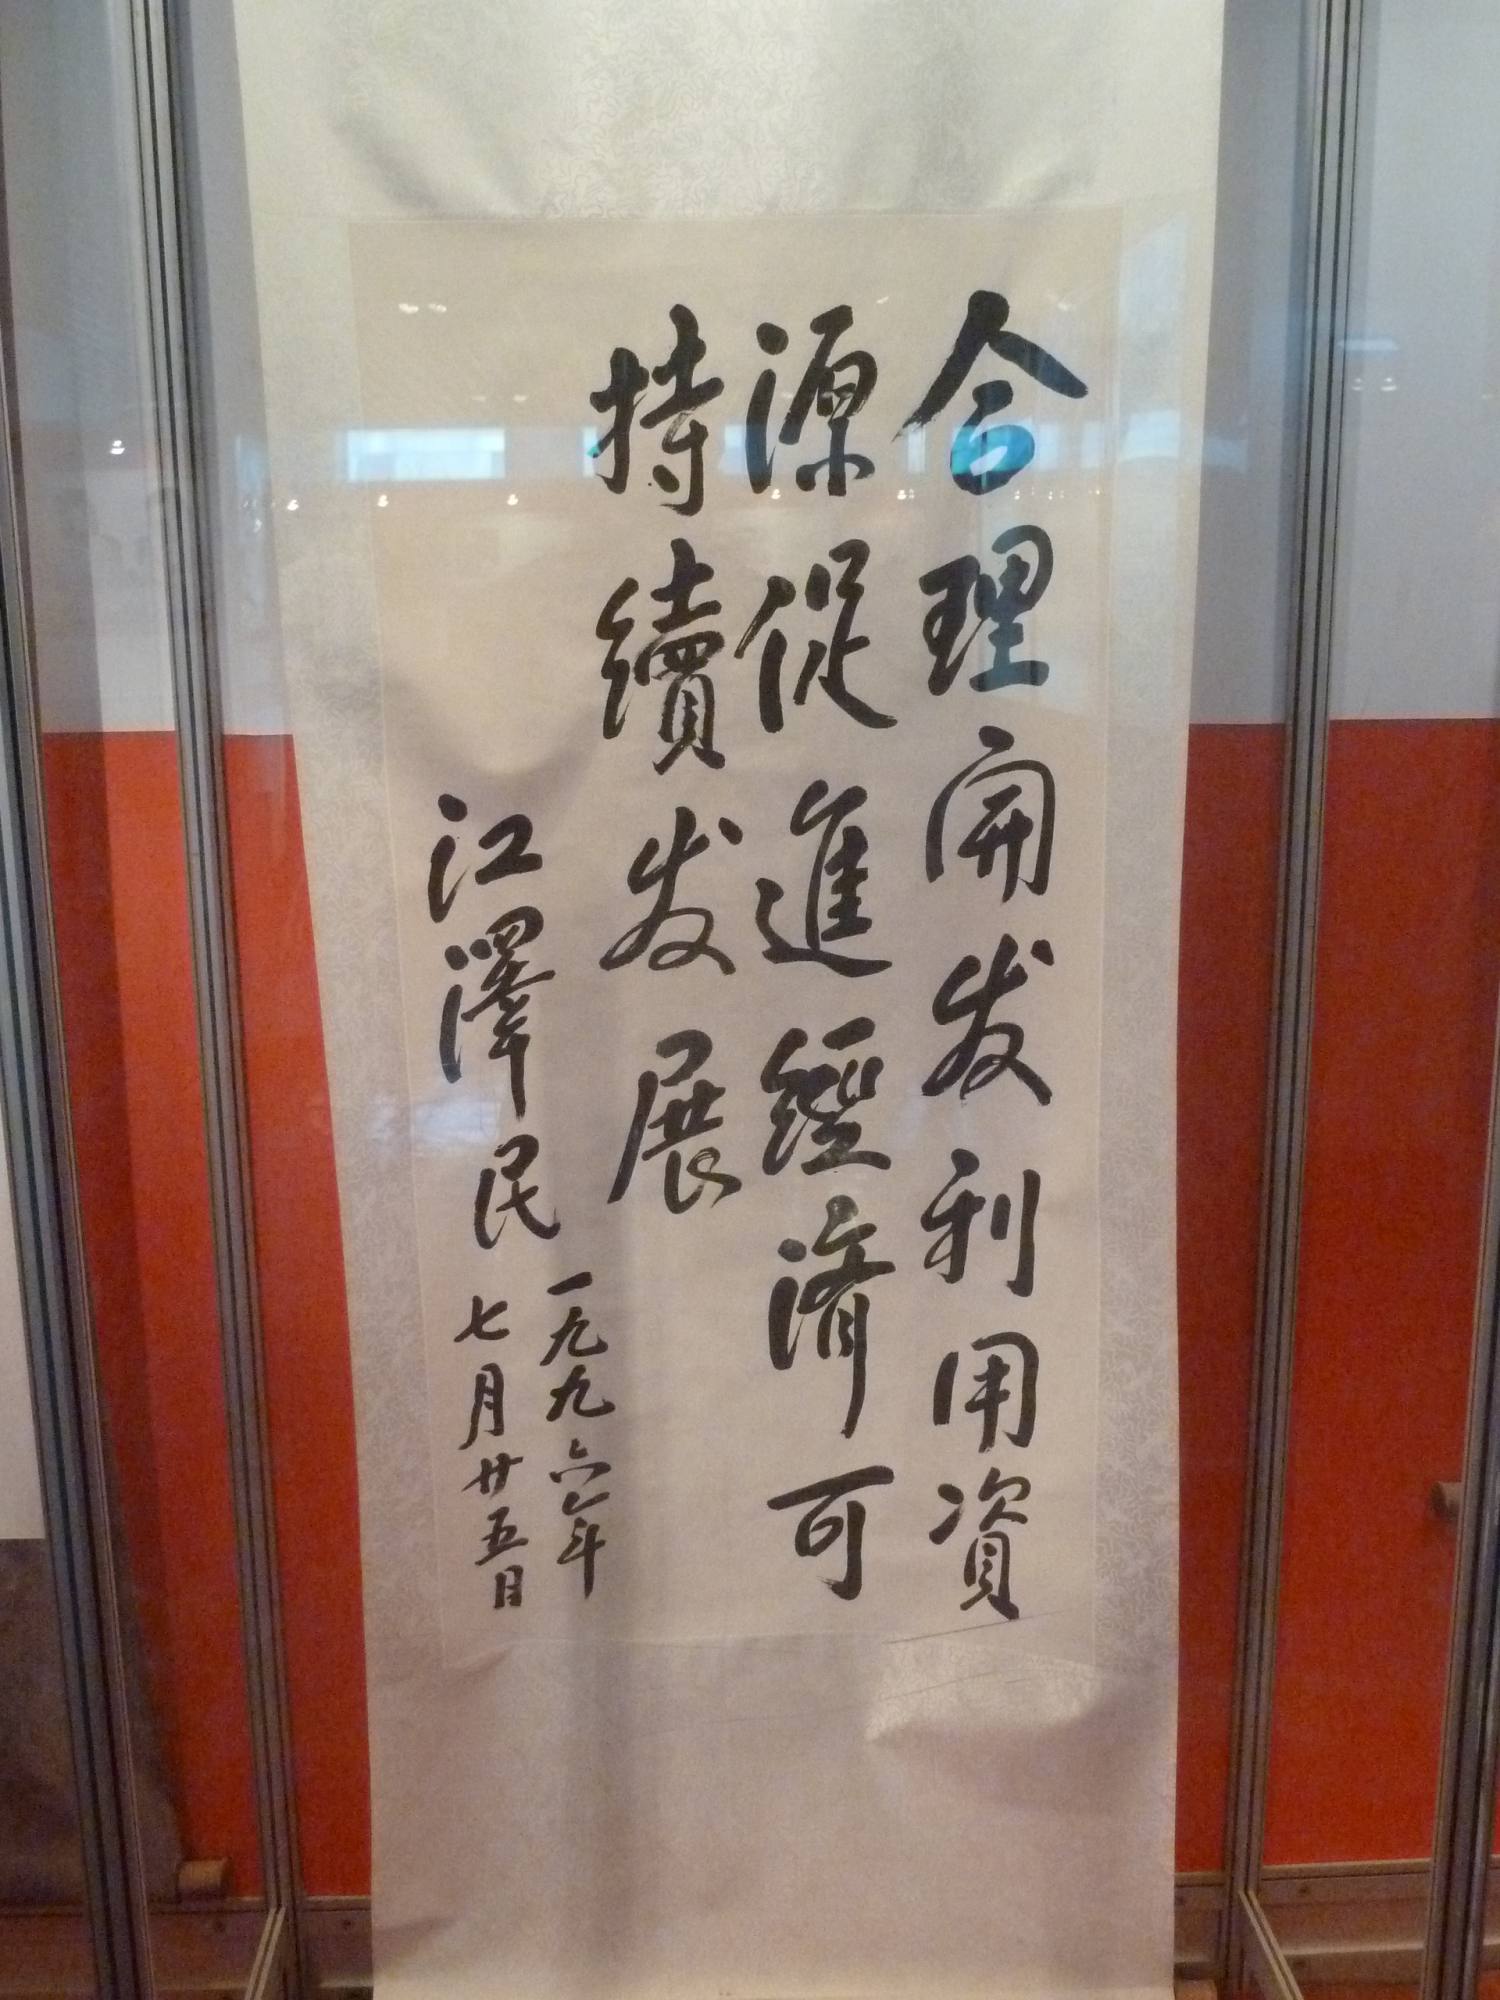 合理开发利用資
源促進經濟可
持續发展
江澤民
一九九六年
七月廿五日